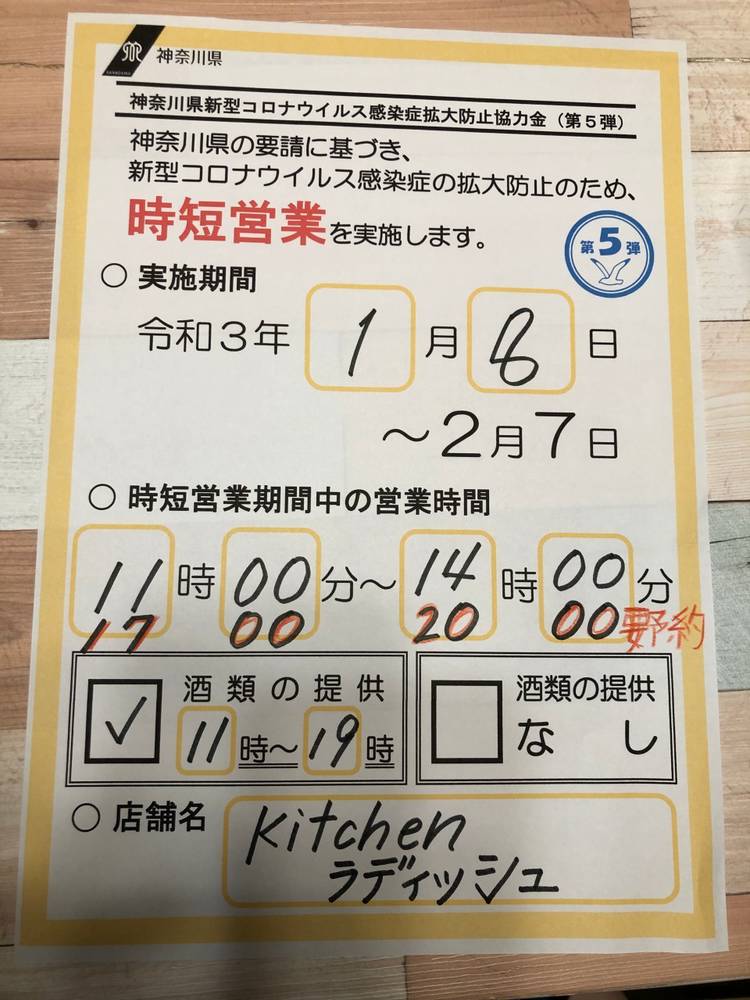 神奈川県
神奈川県新型コロナウイルス感染症拡大防止協力金（第５弾）
神奈川県の要請に基づき、
新型コロナウイルス感染症の拡大防止のため、
時短営業を実施します。
第5弾
○ 実施期間
令和３年 1月8日
～2月7日
○ 時短営業期間中の営業時間
11時00分～14時00分
17 00 20 00 要予約
✓ 酒類の提供
11時～19時
酒類の提供
なし
○ 店舗名
Kitchen
ラディッシュ